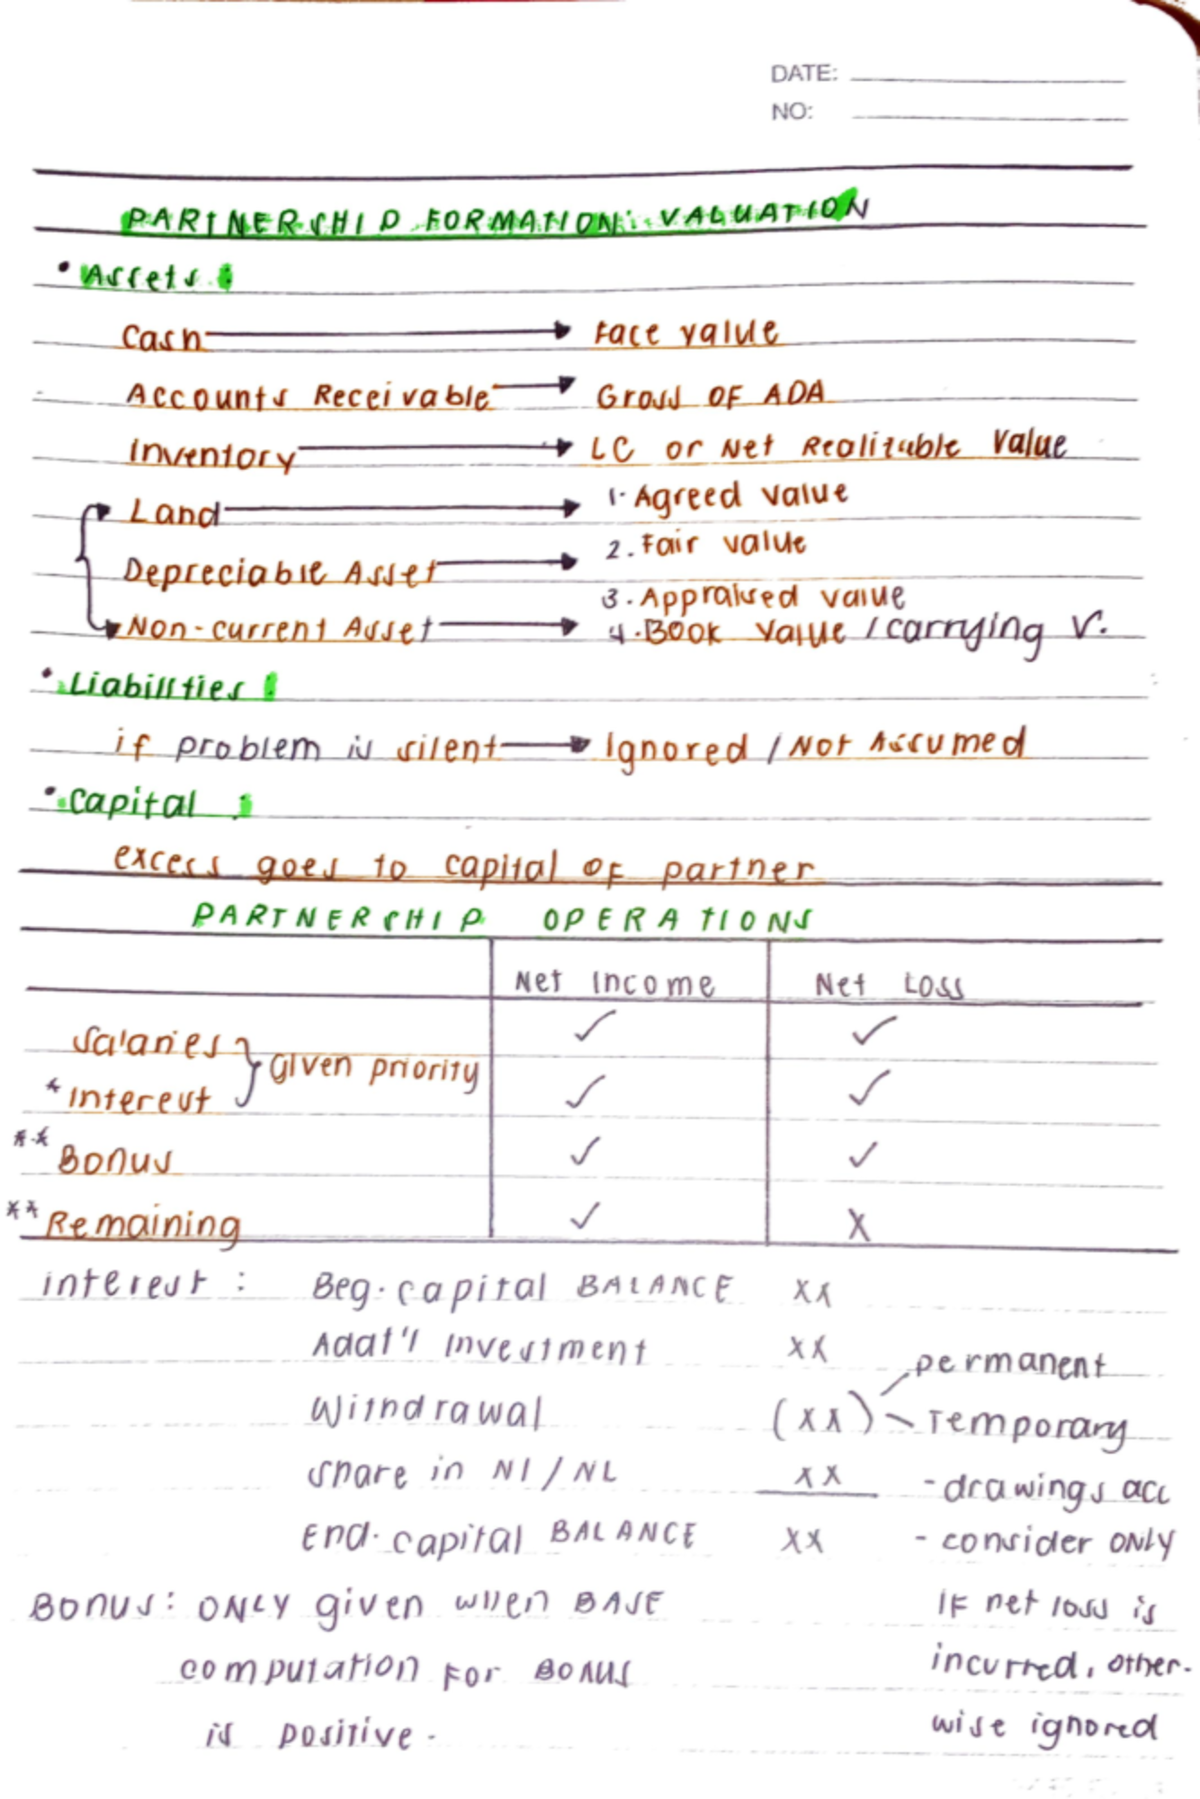 DATE:
NO:
PARTNERSHIP FORMATION: VALUATION
• Assets :
Cash → Face value
Accounts Receivable → Gross OF ADA
Inventory → LC or Net Realizable Value
Land → 1. Agreed value
Depreciable Asset → 2. Fair value
3. Appraised value
Non-current Asset → 4. Book value / carrying V.
• Liabilities :
if problem is silent → Ignored / Not Assumed
• Capital :
excess goes to capital OF partner
PARTNERSHIP OPERATIONS
Net Income Net Loss
Salaries } given priority ✓ ✓
* Interest ✓ ✓
** Bonus ✓ ✓
** Remaining ✓ X
interest : Beg. capital BALANCE xx
Addt'l Investment xx permanent
Withdrawal (xx) Temporary
share in NI / NL xx - drawings acc
End. capital BALANCE xx - consider ONLY
Bonus: ONLY given when BASE IF net loss is
computation For BONUS incurred, other-
is positive. wise ignored